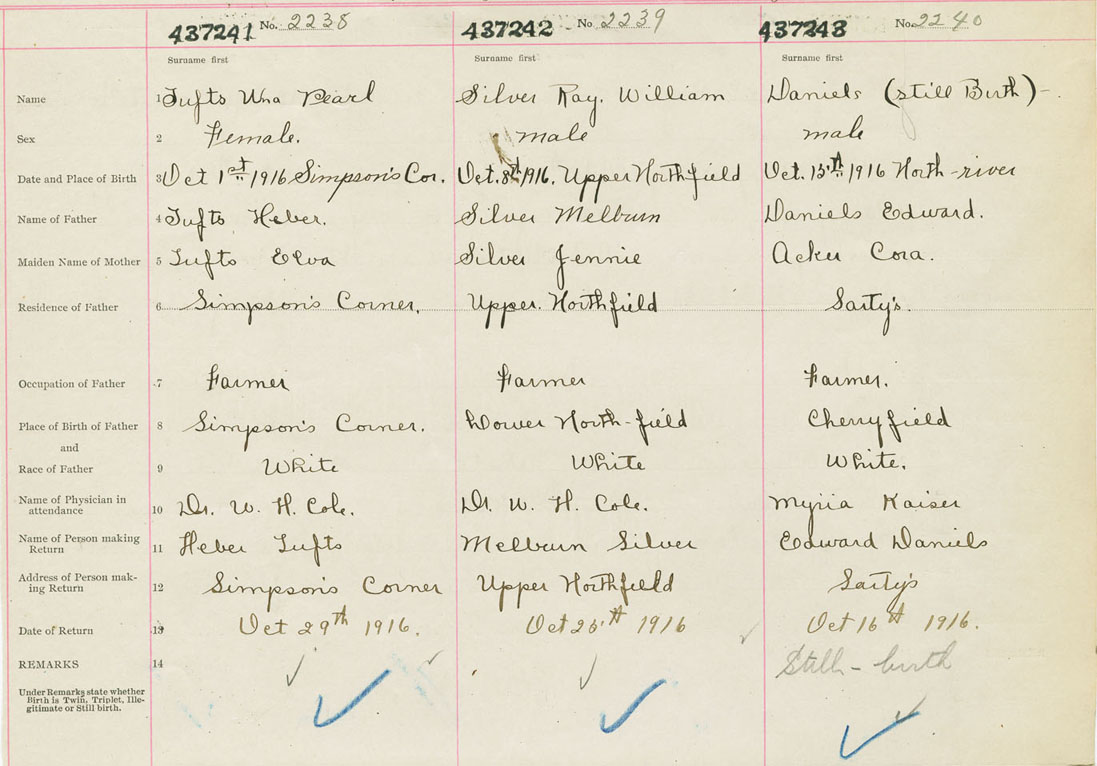 437241 No. 2238 437242 No. 2239 437243 No. 2240
Surname first Surname first Surname first
Name 1 Tufts Una Pearl Silver Ray. William Daniels (still Birth) -
Sex 2 Female. male male
Date and Place of Birth 3 Oct 1st 1916 Simpson's Cor. Oct. 8th 1916. Upper Northfield Oct. 15th 1916 North-river
Name of Father 4 Tufts Heber. Silver Melburn Daniels Edward.
Maiden Name of Mother 5 Tufts Elva Silver Jennie Acker Cora.
Residence of Father 6 Simpson's Corner. Upper. Northfield Sarty's.
Occupation of Father 7 Farmer Farmer Farmer.
Place of Birth of Father 8 Simpson's Corner. Lower North-field Cherryfield
and
Race of Father 9 White White White.
Name of Physician in
attendance 10 Dr. W. H. Cole. Dr. W. H. Cole. Kaiser
Name of Person making
Return 11 Heber Tufts Melburn Silver Edward Daniels
Address of Person mak-
ing Return 12 Simpson's Corner Upper Northfield Sarty's
Date of Return 13 Oct 29th 1916. Oct 25th 1916 Oct 16th 1916.
REMARKS 14 Still-birth
Under Remarks state whether
Birth is Twin, Triplet, Ille-
gitimate or Still birth.